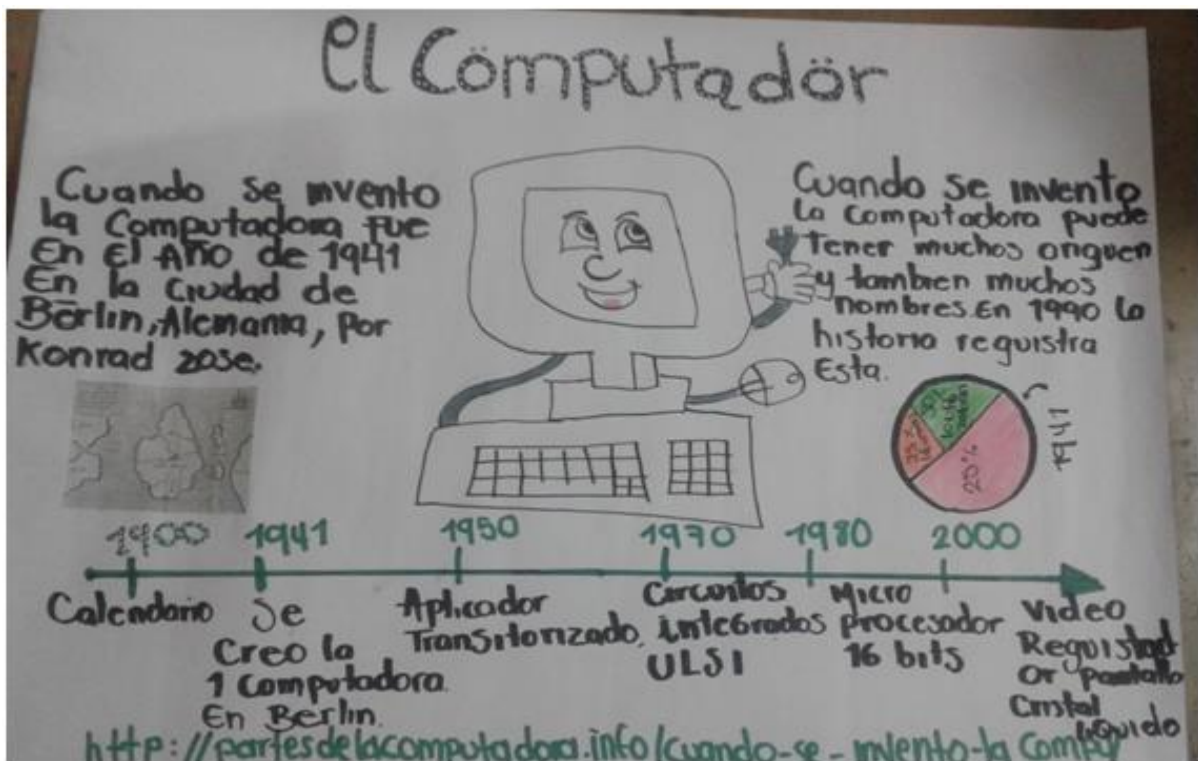 El Computador
Cuando se invento
la Computadora fue
En El Año de 1941
En la Ciudad de
Berlin, Alemania, Por
Konrad zose.
Cuando se invento
La Computadora puede
tener muchos origuen
y tambien muchos
nombres. En 1990 la
historia reguistra
Esta.
20%
1941
1941
1950
1970
1980
2000
Calendario
Se
Creo la
1 Computadora
En Berlin.
Aplicador
Transitorizado.
Circuitos
integrados
ULSI
Micro
procesador
16 bits
Video
Reguistrad
Or pantalla
Cristal
liquido
http://partesdelacomputadora.info/cuando-se-invento-la Compu